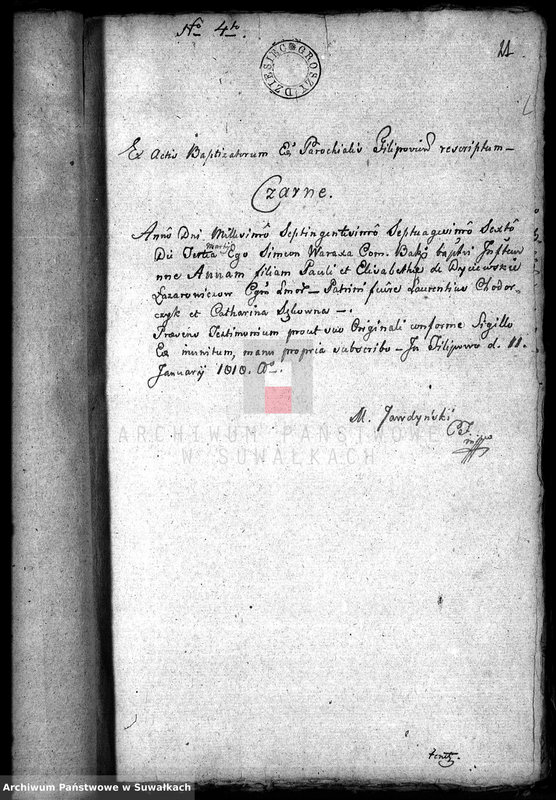 No 4to
21
DZIESIĘC GROSZY
Ex Actis Baptizatorum Ecc Parochialis Filipovien rescriptum —
Czarne.
Anno Dni Millesimo Septingentesimo Septuagesimo Sexto
Die Tertia Martij Ego Simon Waraxa Com. baptisavi Infan
nne Annam filiam Pauli et Elisabethæ de
Lazarowiczow — Patrini fuere Laurentius Chodor-
czyk et Catharina —
Præsens Testimonium prout suo Originali conforme Sigillo
munitum, manu propria subscribo — In Filipowo d. 11.
January 1810. Ao.
M. Jawdyński
ARCHIWUM PAŃSTWOWE
W SUWAŁKACH
Archiwum Państwowe w Suwałkach